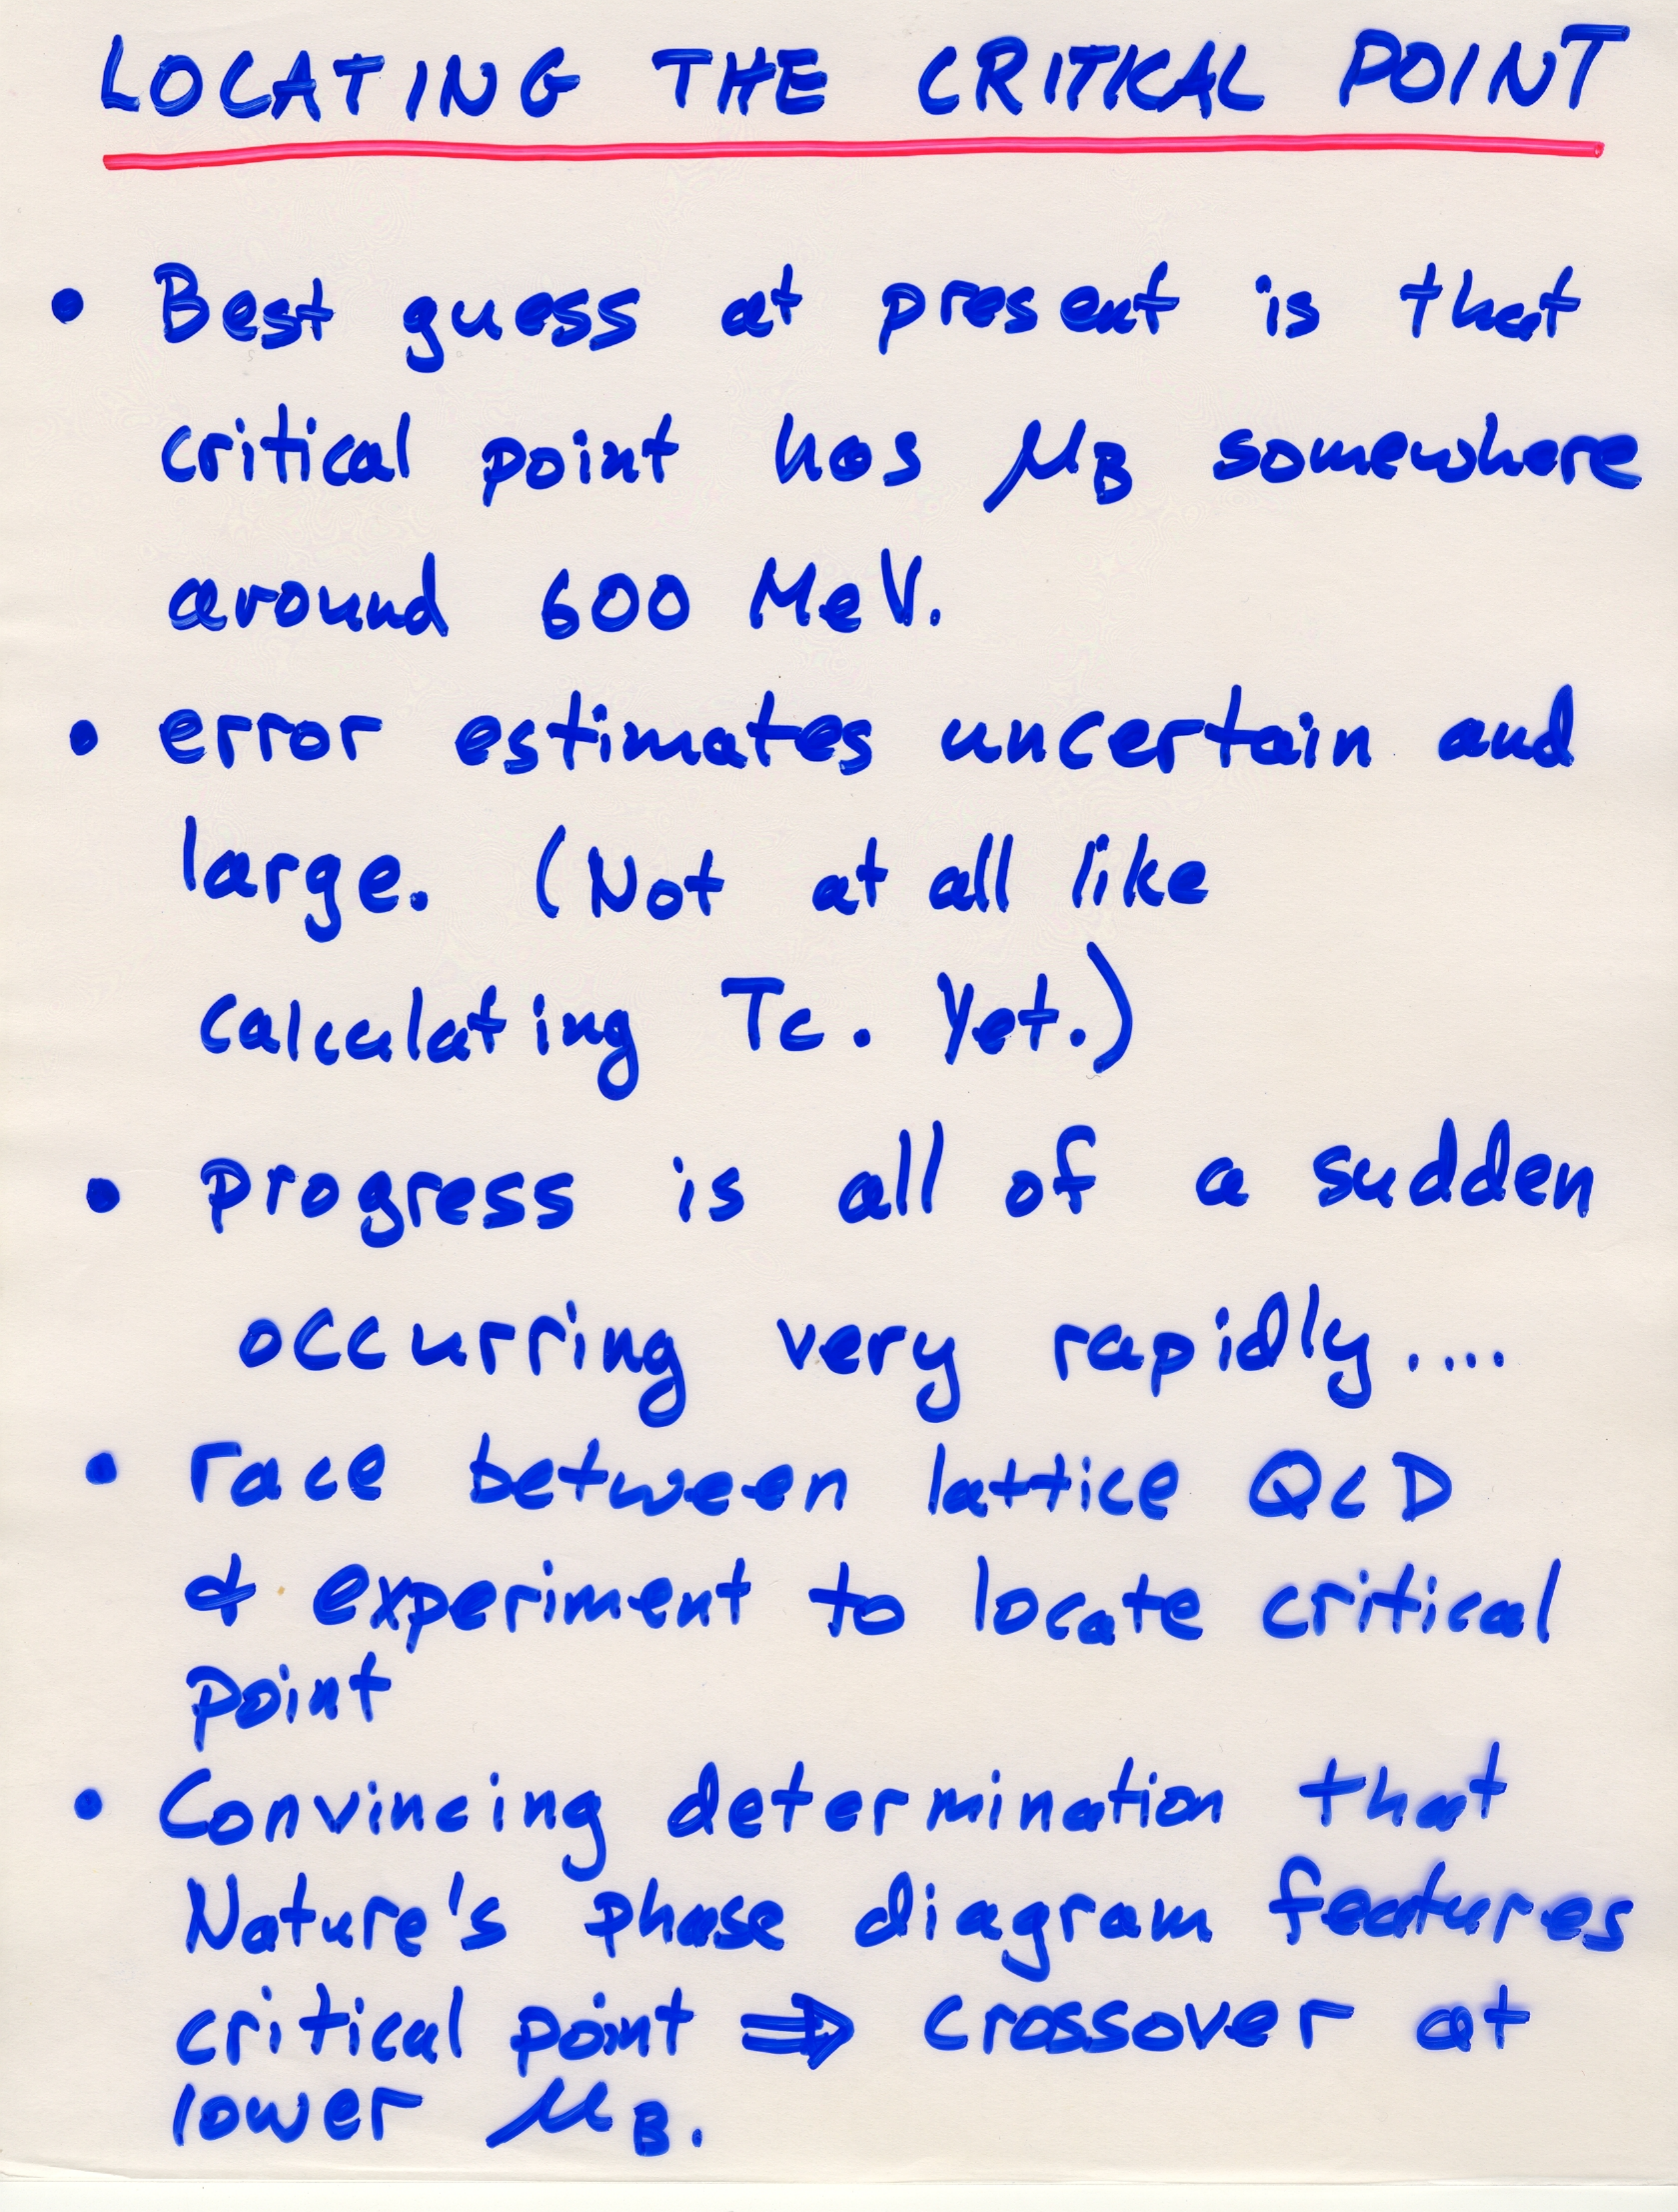 LOCATING THE CRITICAL POINT
• Best guess at present is that
critical point has μB somewhere
around 600 MeV.
• error estimates uncertain and
large. (Not at all like
calculating Tc. Yet.)
• progress is all of a sudden
occurring very rapidly....
• race between lattice QCD
& experiment to locate critical
point
• Convincing determination that
Nature's phase diagram features
critical point ⇒ crossover at
lower μB.